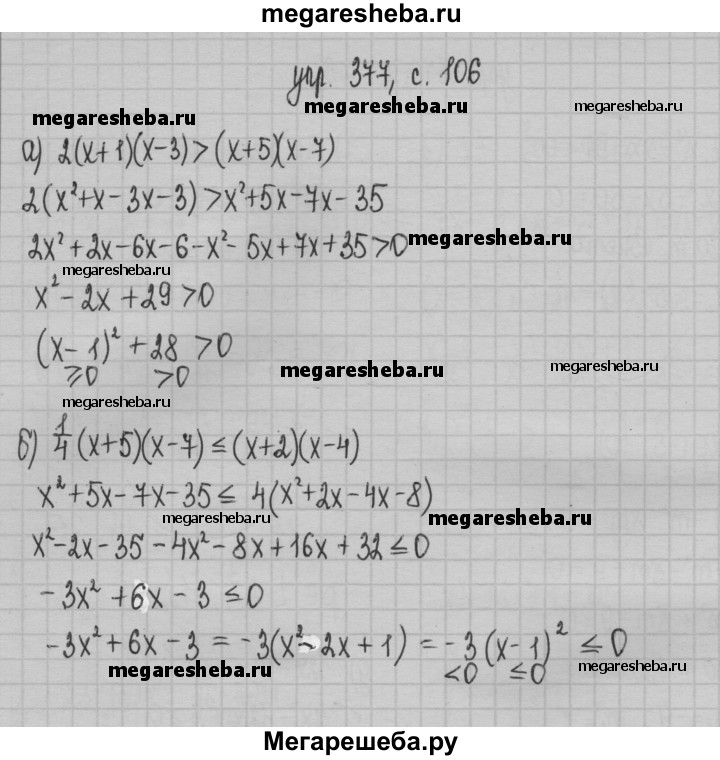 megaresheba.ru
упр. 377, с. 106
megaresheba.ru
megaresheba.ru
megaresheba.ru
а) 2(x+1)(x-3)>(x+5)(x-7)
2(x²+x-3x-3)>x²+5x-7x-35
2x²+2x-6x-6-x²-5x+7x+35>0
megaresheba.ru
megaresheba.ru
x²-2x+29>0
(x-1)²+28>0
≥0 >0
megaresheba.ru
megaresheba.ru
megaresheba.ru
б) 1/4(x+5)(x-7)≤(x+2)(x-4)
x²+5x-7x-35≤4(x²+2x-4x-8)
megaresheba.ru
megaresheba.ru
x²-2x-35-4x²-8x+16x+32≤0
-3x²+6x-3≤0
-3x²+6x-3=-3(x²-2x+1)=-3(x-1)²≤0
<0 ≤0
megaresheba.ru
megaresheba.ru
Мегарешеба.ру